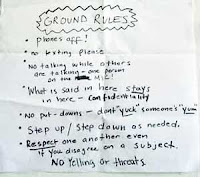 GROUND RULES
• phones off!
• no texting please
• No talking while others
are talking - one person
on the MIC!
• What is said in here stays
in here - Confidentiality
• No put-downs - dont "yuck" someone's "yum"
• Step up / Step down as needed.
• Respect one another even
if you disagree on a subject.
NO Yelling or threats.